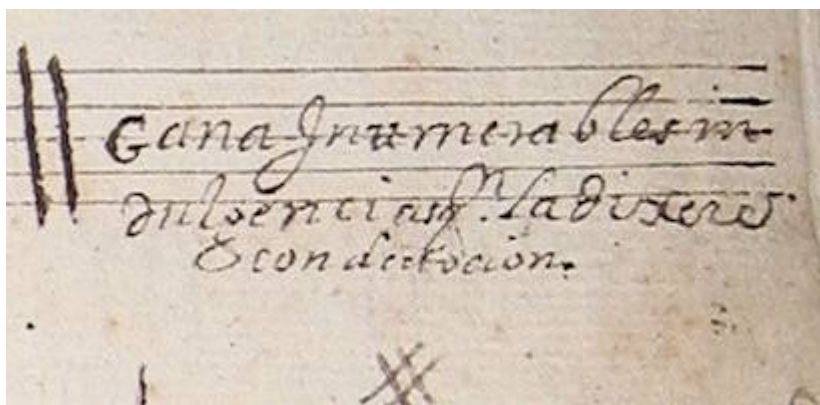 Gana Jnumerables in
dulgencias qn. la dixere
con devocion.